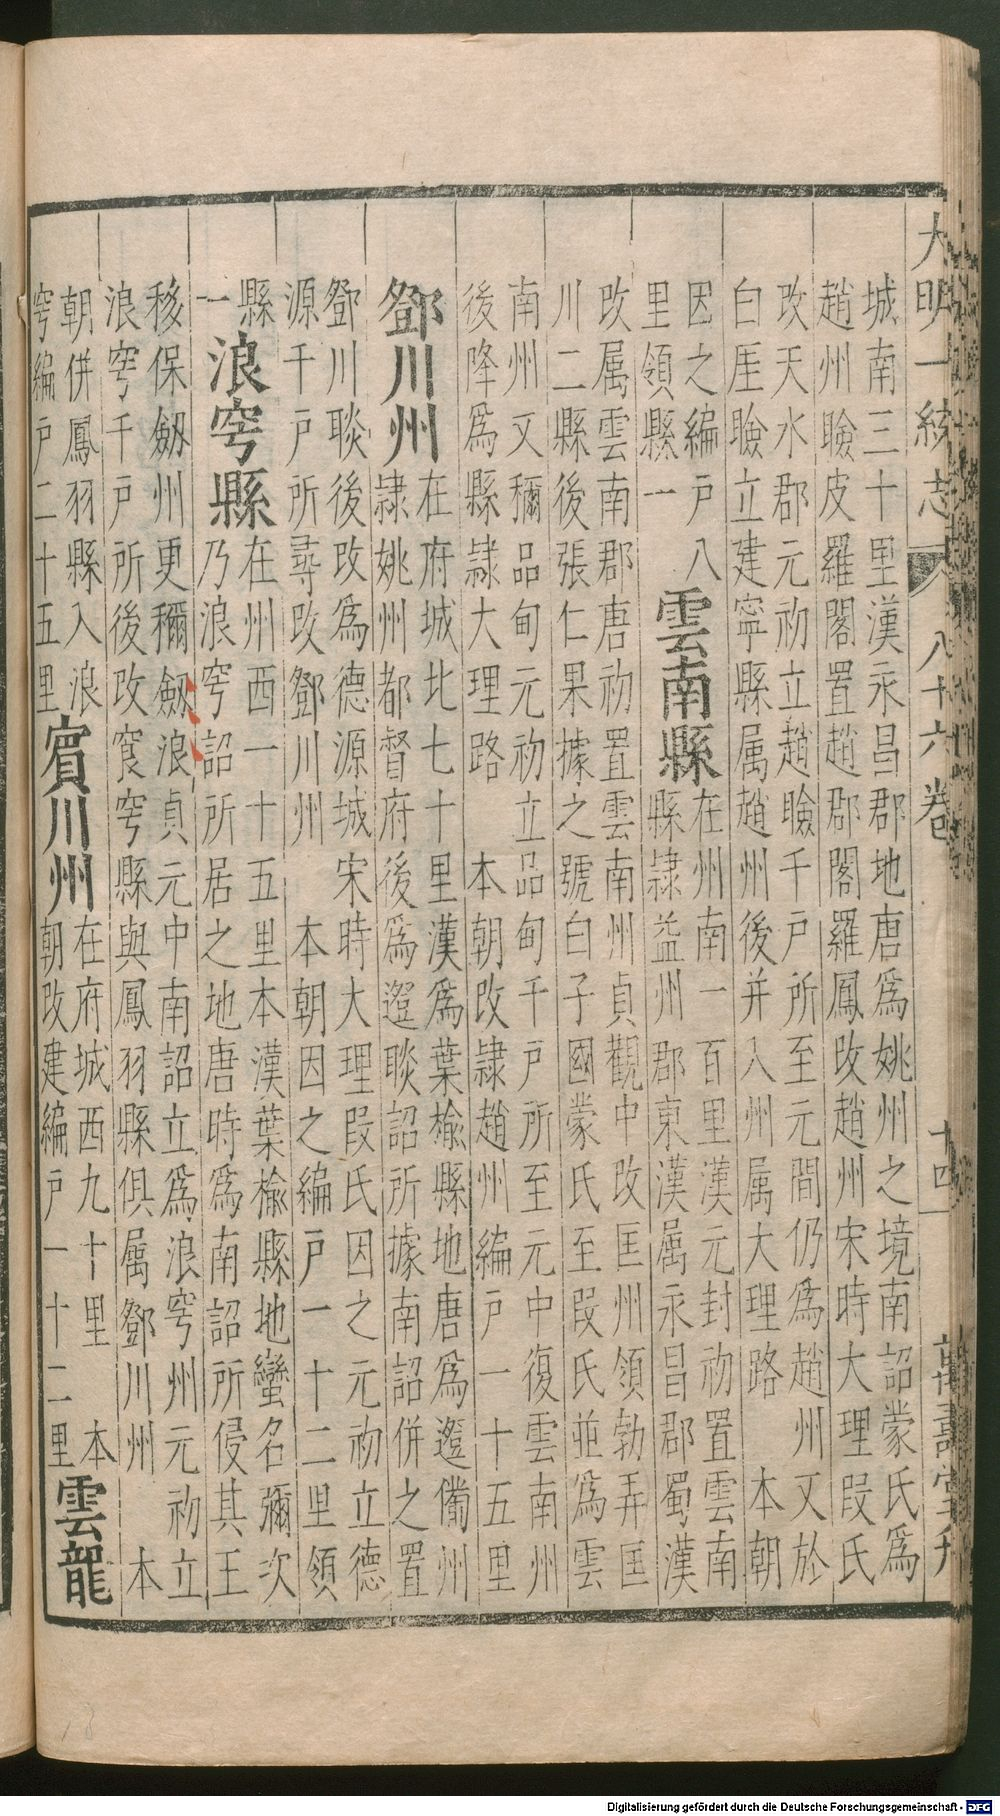 大明一統志 八十六卷 十四 萬壽堂刊
城南三十里漢永昌郡地唐爲姚州之境南詔蒙氏爲
趙州瞼皮羅閣置趙郡閣羅鳳改趙州宋時大理段氏
改天水郡元初立趙瞼千戶所至元間仍爲趙州又於
白厓瞼立建寧縣属趙州後并入州属大理路 本朝
因之編戶八
里領縣一
雲南縣
在州南一百里漢元封初置雲南
縣隷益州郡東漢屬永昌郡蜀漢
改属雲南郡唐初置雲南州貞觀中改匡州領勃弄匡
川二縣後張仁果據之號白子國蒙氏至段氏並爲雲
南州又稱品甸元初立品甸千戶所至元中復雲南州
後降爲縣隷大理路 本朝改隷趙州編戶一十五里
鄧川州
在府城北七十里漢爲葉榆縣地唐爲邆備州
隷姚州都督府後爲邆睒詔所據南詔併之置
鄧川睒後改爲德源城宋時大理段氏因之元初立德
源千戶所尋改鄧川州 本朝因之編戶一十二里領
縣
一
浪穹縣
在州西一十五里本漢葉榆縣地蠻名彌次
乃浪穹詔所居之地唐時爲南詔所侵其王
移保劔州更稱劔浪貞元中南詔立爲浪穹州元初立
浪穹千戶所後改寔穹縣與鳳羽縣俱屬鄧川州 本
朝併鳳羽縣入浪
穹編戶二十五里
賓川州
在府城西九十里 本
朝改建編戶一十二里
雲龍
Digitalisierung gefördert durch die Deutsche Forschungsgemeinschaft - DFG